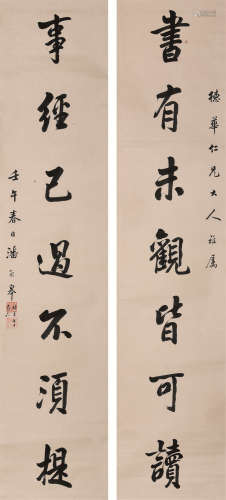 德華仁兄大人雅屬
書有未觀皆可讀
事經已過不須提
壬午春日潘齡皋